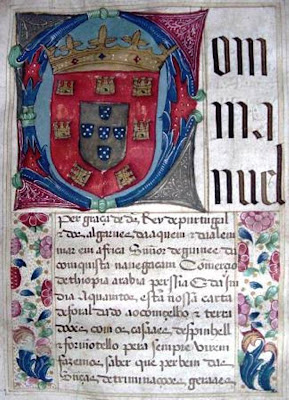 Dom
ma
nuel
Per graça de ds Rey de purtugal
z dos algarues daaquem z daalem
mar em africa Señor de guinee z da
comquista nauegacam Comercio
de thiopia arabia perssia z da Jn
dia Aquantos esta nossa carta
de foral dado ao comçelho z terra
com os casaaes despinhell
z fornotello pera sempre virem
fazemos saber que per bem das
Snnças detriminaçoes geraaes